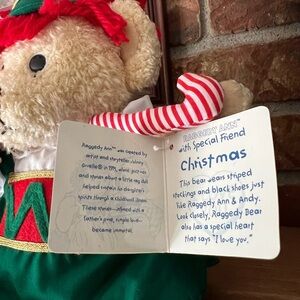 Raggedy Ann™ was created by
artist and storyteller Johnny
Gruelle® in 1915, when
and stories about a little rag doll
helped sustain his daughter's
spirits through a childhood illness.
These stories—infused with a
father's pure, simple love—
became immortal.
RAGGEDY ANN™
with Special Friend
Christmas
This bear wears striped
stockings and black shoes just
like Raggedy Ann & Andy.
Look closely, Raggedy Bear
also has a special heart
that says "I love you."